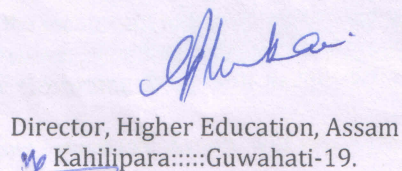 Director, Higher Education, Assam
Kahilipara:::::Guwahati-19.